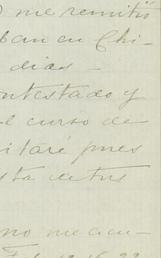 me remitió
ban en Chi-
dias -
ontestado y
el curso de
itaré pues
sta cetus
no me acu-